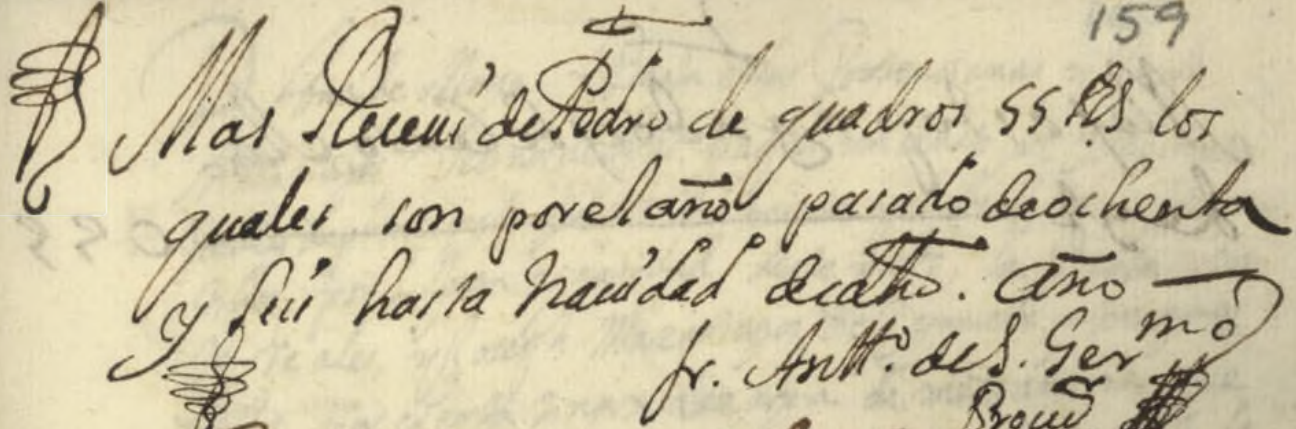 159
Mas Receui de Pedro de quadros 55 Rs los
quales son por el año pasado de ochenta
y seis hasta Nauidad de dho. año
fr. Antto. de S. Germo
Procur